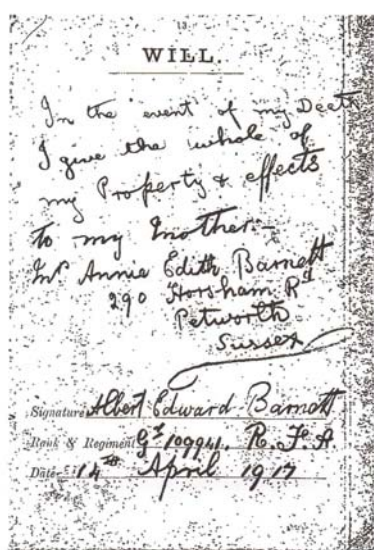 13
WILL.
In the event of my Death
I give the whole of
my Property & effects
to my Mother:-
Mrs Annie Edith Barnett
290 Horsham Rd
Petworth
Sussex
Signature Albert Edward Barnett
Rank & Regiment Gr 109941. R.F.A
Date 14th April 1917